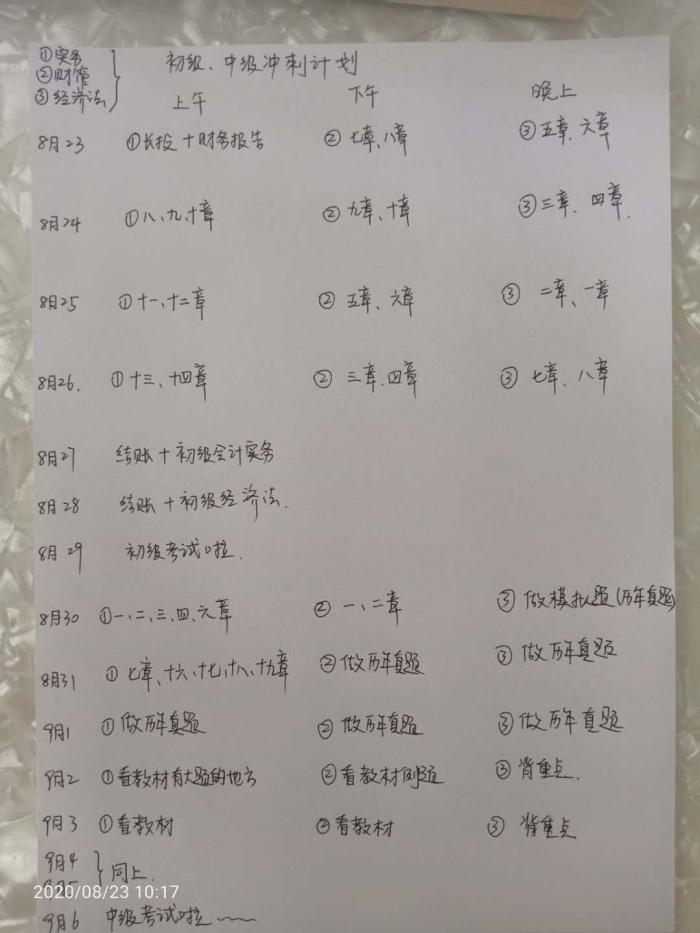 ①实务
②财管
③经济法
初级、中级冲刺计划
上午 下午 晚上
8月23 ①长投+财务报告 ②七章、八章 ③五章、六章
8月24 ①八、九、十章 ②九章、十章 ③三章、四章.
8月25 ①十一、十二章 ②五章、六章 ③二章、一章
8月26. ①十三、十四章 ②三章.四章 ③七章、八章
8月27 结账+初级会计实务
8月28 结账+初级经济法.
8月29 初级考试啦.
8月30 ①一、二、三、四、六章 ②一、二章 ③做模拟题(历年真题)
8月31 ①七章、十六、十七、十八、十九章 ②做历年真题 ③做历年真题
9月1 ①做历年真题 ②做历年真题 ③做历年真题
9月2 ①看教材有大题的地方 ②看教材例题 ③背重点.
9月3 ①看教材 ②看教材 ③背重点
9月4
9月5
同上.
2020/08/23 10:17
9月6 中级考试啦~~